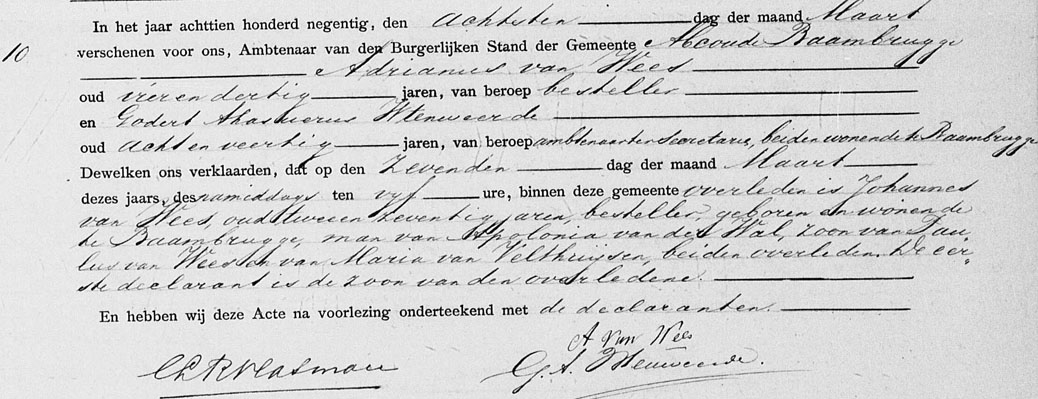 In het jaar achttien honderd negentig, den achtsten dag der maand Maart
10 verschenen voor ons, Ambtenaar van den Burgerlijken Stand der Gemeente Abcoude Baambrugge
Adrianus van Wees
oud vier en dertig jaren, van beroep besteller
en Godert Ahasuerus Wtenweerde
oud acht en veertig jaren, van beroep ambtenaar ter Secretarie, beiden wonende te Baambrugge
Dewelken ons verklaarden, dat op den zevenden dag der maand Maart
dezes jaars, des namiddags ten vyf ure, binnen deze gemeente overleden is Johannes
van Wees, oud twee en zeventig jaren, besteller, geboren en wonende
te Baambrugge, man van Apolonia van der Wal, zoon van Pau-
lus van Wees en van Maria van Velthuijsen, beiden overleden. De eer-
ste declarant is de zoon van den overledene.
En hebben wij deze Acte na voorlezing onderteekend met de declaranten.
A van Wees
G. A.